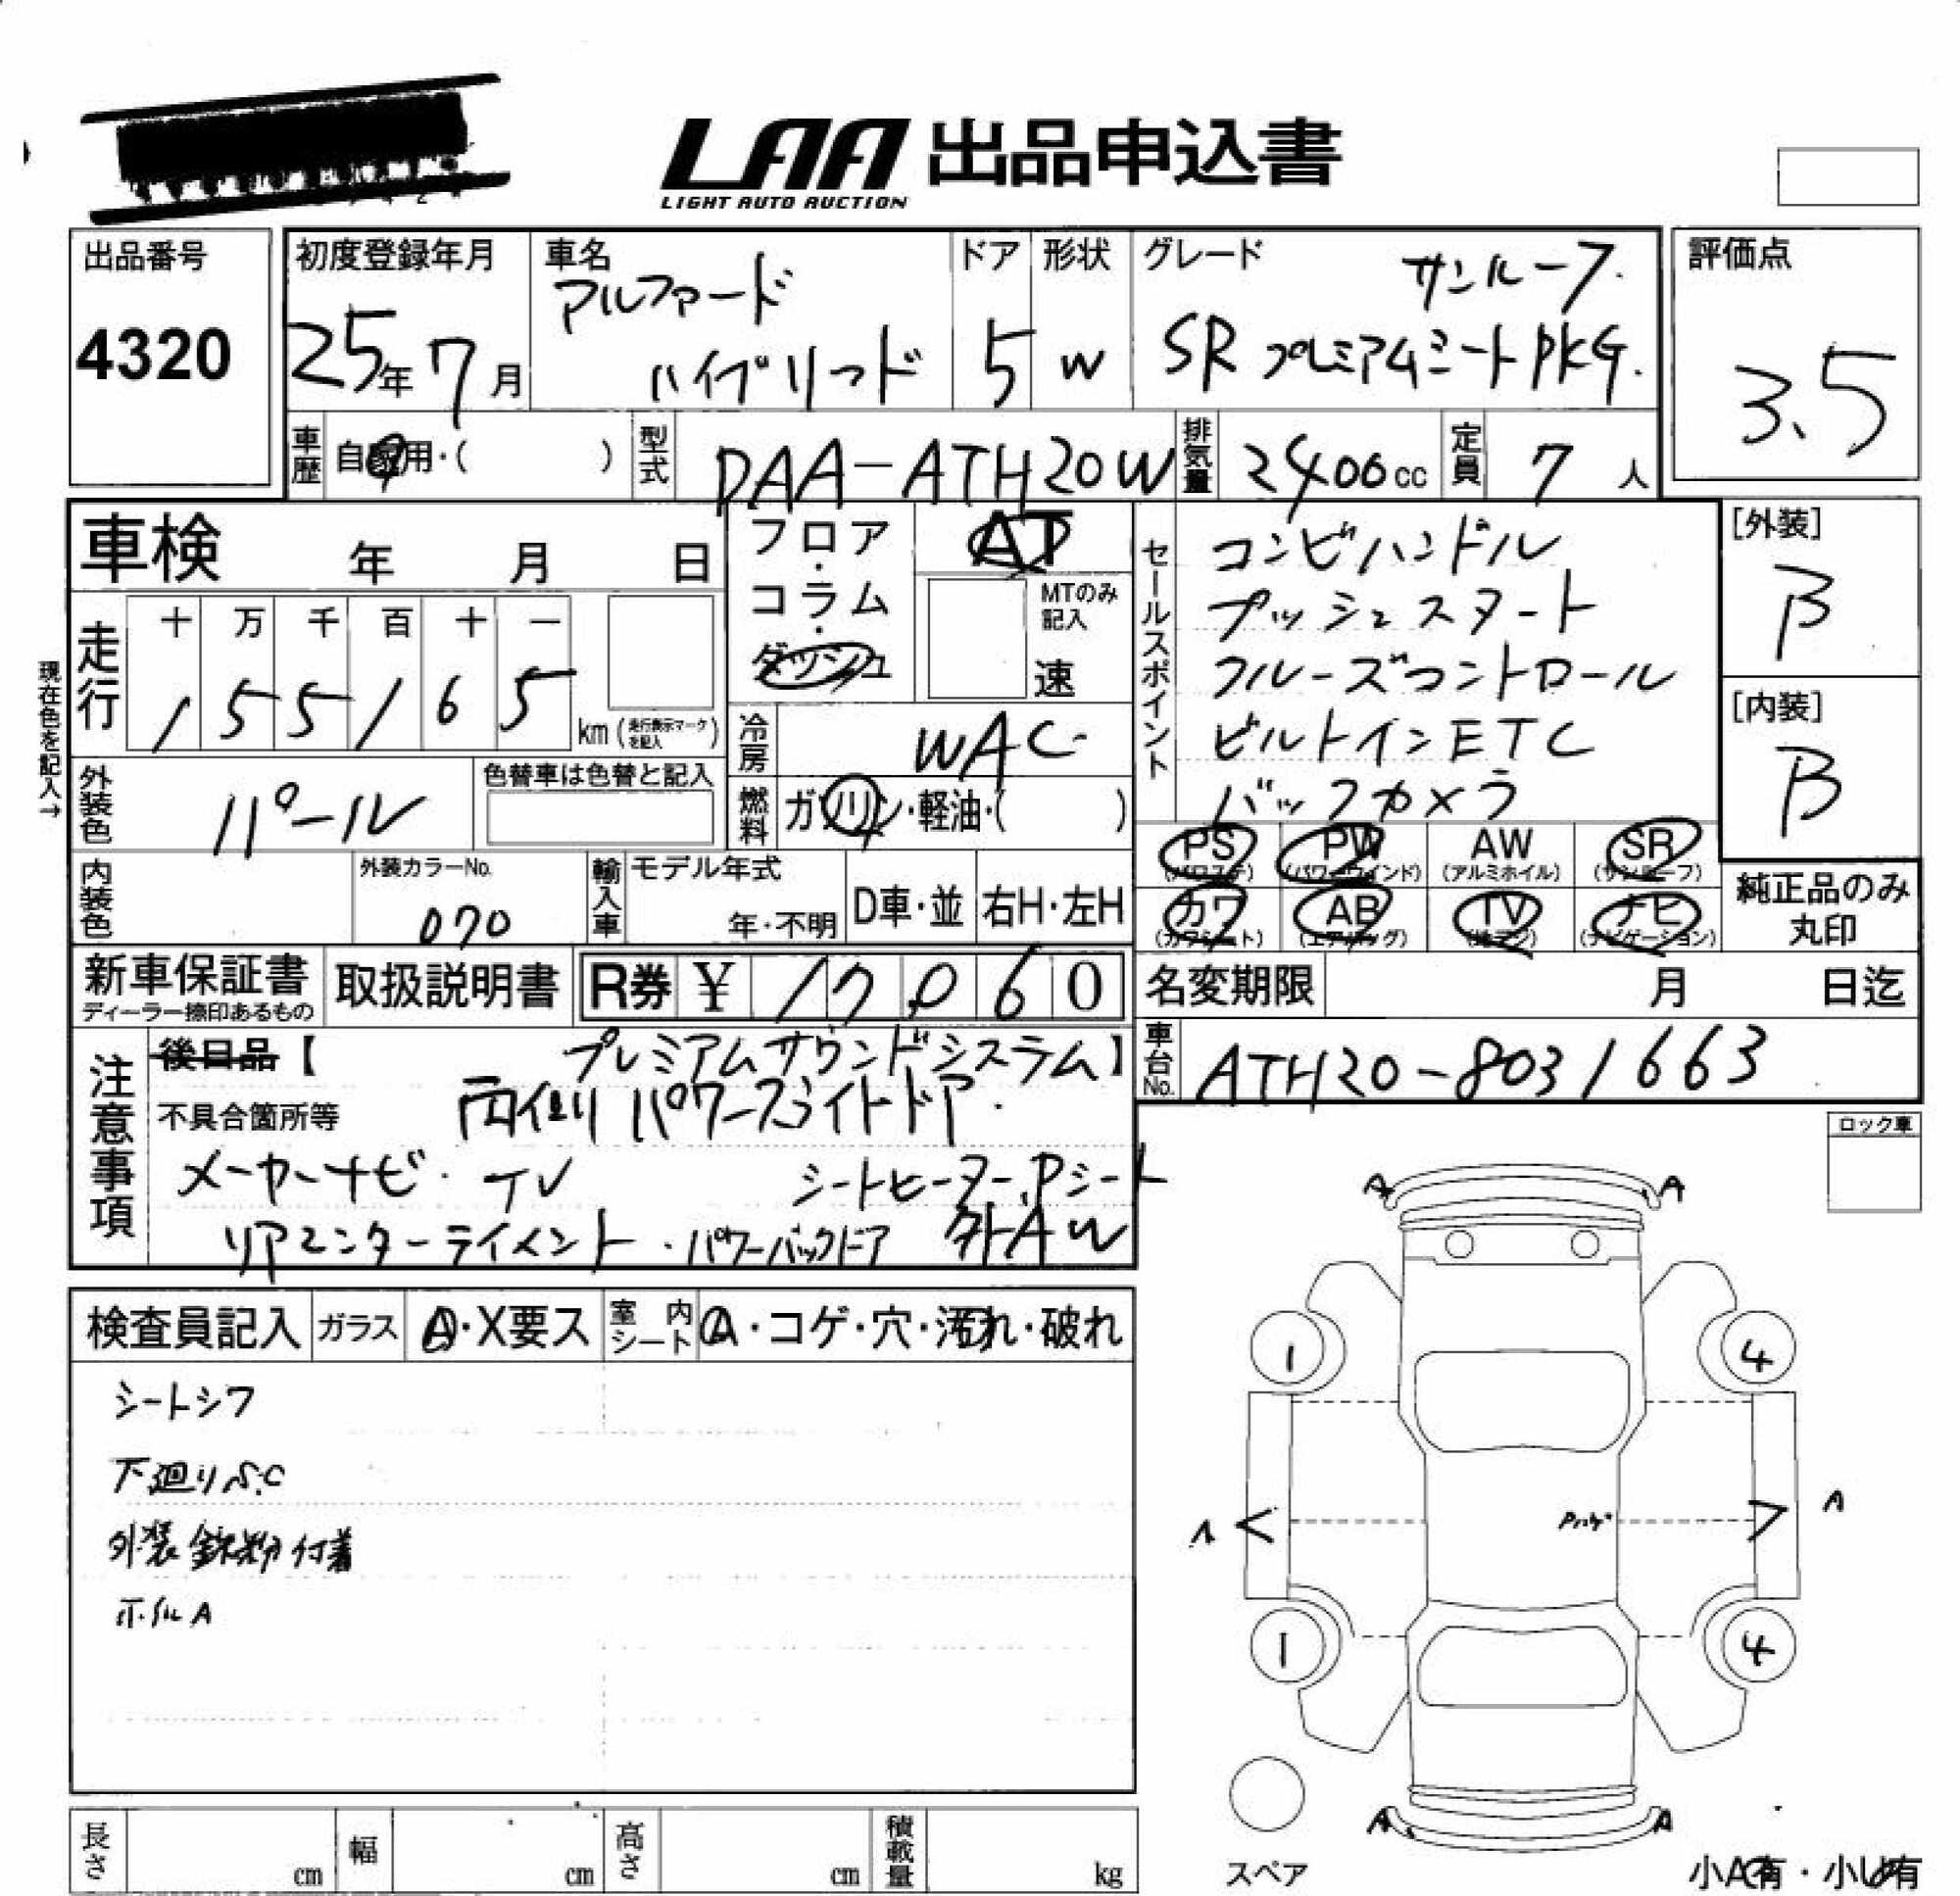 LAA 出品申込書
LIGHT AUTO AUCTION
出品番号
4320
初度登録年月
25年 7月
車名
アルファード
ハイブリッド
ドア
5
形状
W
グレード
サンルーフ.
SR プレミアムシートPKG.
評価点
3.5
車歴
自家用・( )
型式
DAA-ATH20W
排気量
2400cc
定員
7 人
車検 年 月 日
フロア・コラム・ダッシュ
AT
MTのみ記入
速
セールスポイント
コンビハンドル
プッシュスタート
クルーズコントロール
ビルトインETC
バックカメラ
[外装]
B
[内装]
B
現在色を記入→
走行
十 万 千 百 十 一
1 5 5 1 6 5
km (走行表示マークを記入)
冷房
WAC
外装色
パール
色替車は色替と記入
燃料
ガソリン・軽油・( )
PS (パワステ)
PW (パワーウィンド)
AW (アルミホイル)
SR (サンルーフ)
カワ (カワシート)
AB (エアバッグ)
TV (地デジ)
ナビ (ナビゲーション)
純正品のみ
丸印
内装色
外装カラーNo.
070
輸入車
モデル年式
年・不明
D車・並
右H・左H
新車保証書
ディーラー捺印あるもの
取扱説明書
R券 ¥ 17060
名変期限 月 日迄
車台No.
ATH20-8031663
注意事項
後日品【 プレミアムサウンドシステム】
不具合箇所等 両側パワースライドドア.
メーカーナビ. TV シートヒーター.Pシート
リアエンターテイメント.パワーバックドア 外AW
ロック車
検査員記入
ガラス
A・X要ス
室内シート
A・コゲ・穴・汚れ・破れ
シートシワ
下廻りS.C
外装 鉄粉付着
ホイルA
A A
1 4
A < > A
1 4
A A
スペア
長さ cm
幅 cm
高さ cm
積載量 kg
小A有・小U有